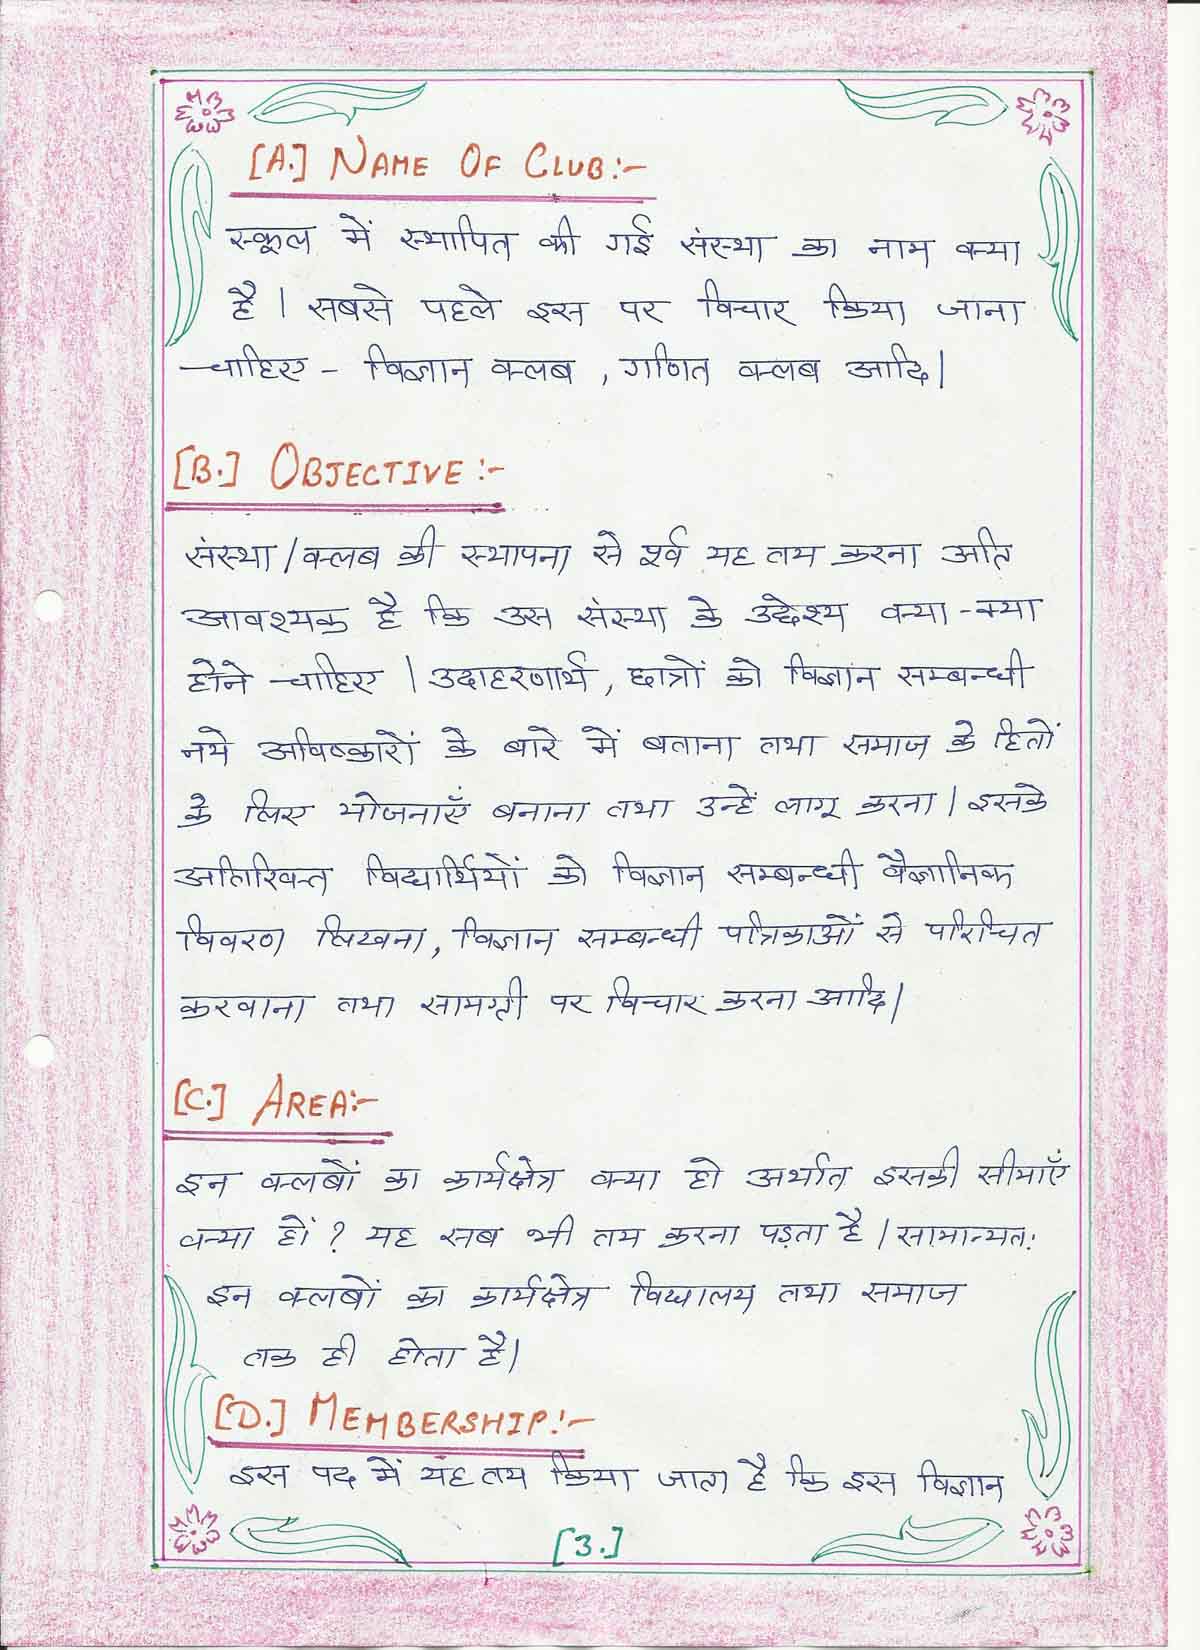 [A.] NAME OF CLUB:-
स्कूल में स्थापित की गई संस्था का नाम क्या
है। सबसे पहले इस पर विचार किया जाना
चाहिए - विज्ञान क्लब, गणित क्लब आदि।
[B.] OBJECTIVE:-
संस्था/क्लब की स्थापना से पूर्व यह तय करना अति
आवश्यक है कि उस संस्था के उद्देश्य क्या-क्या
होने चाहिए। उदाहरणार्थ, छात्रों को विज्ञान सम्बन्धी
नये अविष्कारों के बारे में बताना तथा समाज के हितों
के लिए योजनाएँ बनाना तथा उन्हें लागू करना। इसके
अतिरिक्त विद्यार्थियों को विज्ञान सम्बन्धी वैज्ञानिक
विवरण लिखना, विज्ञान सम्बन्धी पत्रिकाओं से परिचित
करवाना तथा सामग्री पर विचार करना आदि।
[C.] AREA:-
इन क्लबों का कार्यक्षेत्र क्या हो अर्थात इसकी सीमाएँ
क्या हों? यह सब भी तय करना पड़ता है। सामान्यत:
इन क्लबों का कार्यक्षेत्र विद्यालय तथा समाज
तक ही होता है।
[D.] MEMBERSHIP:-
इस पद में यह तय किया जाता है कि इस विज्ञान
[3.]